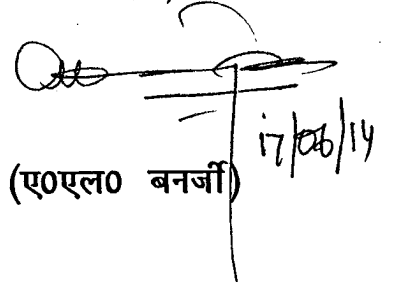 17/06/14
(ए0एल0 बनर्जी)